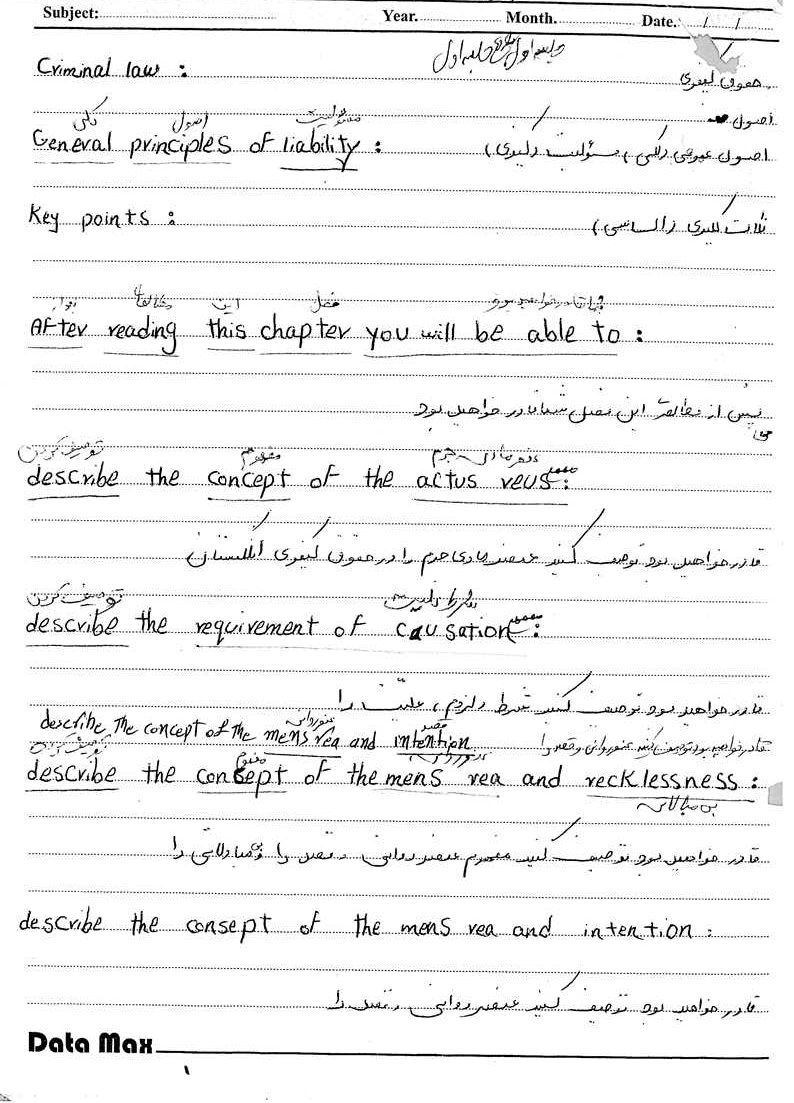 Subject: Year. Month. Date. / /
جلسه اول جلسه اول
Criminal law :
حقوق کیفری
اصول
کلی اصول مسئولیت
General principles of liability :
اصول عمومی (کلی) مسئولیت (کیفری)
Key points :
نکات کلیدی (اساسی)
بعد از مطالعه این فصل شما قادر خواهید بود
After reading this chapter you will be able to :
پس از مطالعه این فصل شما قادر خواهید بود
توصیف کردن مفهوم عنصر مادی جرم
describe the concept of the actus reus :
قادر خواهید بود توصیف کنید عنصر مادی جرم را در حقوق کیفری انگلستان
توصیف کردن علیت
describe the requirement of causation :
قادر خواهید بود توصیف کنید شرط (لزوم) علیت را
عنصر روانی قصد
describe the concept of the mens rea and intention
قادر خواهید بود توصیف کنید عنصر روانی و قصد را
توصیف کردن مفهوم عنصر روانی
describe the consept of the mens rea and recklessness :
بی مبالاتی
قادر خواهید بود توصیف کنید مفهوم عنصر روانی و قصد را و بی مبالاتی را
describe the consept of the mens rea and intention :
قادر خواهید بود توصیف کنید عنصر روانی و قصد را
Data Max
۱